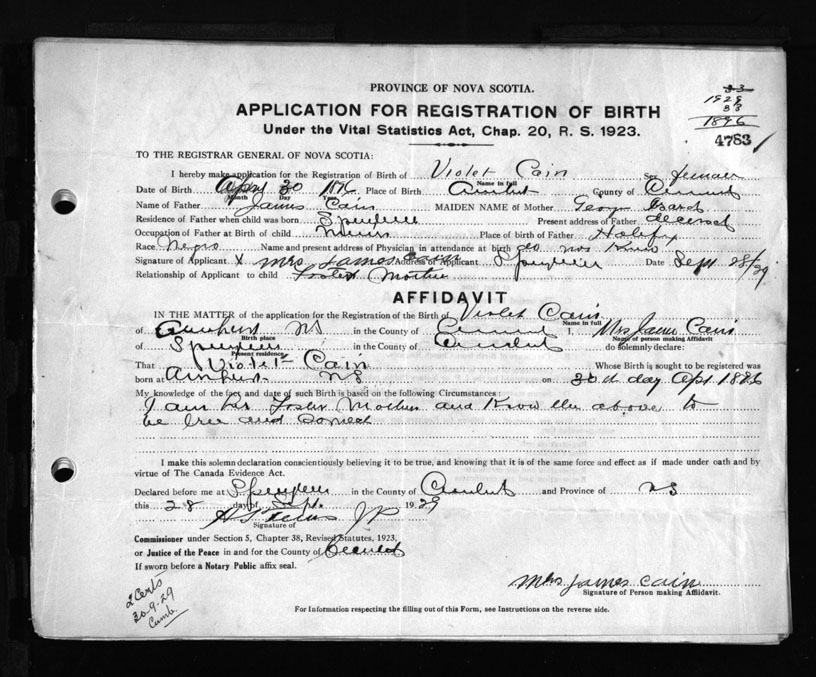 PROVINCE OF NOVA SCOTIA.
33
1929
83
1896
4783
APPLICATION FOR REGISTRATION OF BIRTH
Under the Vital Statistics Act, Chap. 20, R. S. 1923.
TO THE REGISTRAR GENERAL OF NOVA SCOTIA:
I hereby make application for the Registration of Birth of Violet Cain Sex female
Name in full
Date of Birth April 30 1896 Place of Birth Amherst County of
Month Day Year
Name of Father James Cain MAIDEN NAME of Mother
Residence of Father when child was born Present address of Father deceased
Occupation of Father at Birth of child Place of birth of Father Halifax
Race Negro Name and present address of Physician in attendance at birth do not Know
Signature of Applicant X Mrs James Cain Address of Applicant Date Sept 28/29
Relationship of Applicant to child Foster Mother
AFFIDAVIT
IN THE MATTER of the application for the Registration of the Birth of Violet Cain
Name in full
of Amherst NS in the County of I, Mrs James Cain
Birth place Name of person making Affidavit
of in the County of do solemnly declare:
Present residence
That Violet Cain Whose Birth is sought to be registered was
born at Amherst NS on 30th day Apr
My knowledge of the fact and date of such Birth is based on the following Circumstances:
I am her Foster Mother and Know the above to
be true and correct
I make this solemn declaration conscientiously believing it to be true, and knowing that it is of the same force and effect as if made under oath and by
virtue of The Canada Evidence Act.
Declared before me at in the County of and Province of NS
this 28 day of Sept. 1929
JP
Signature of
Commissioner under Section 5, Chapter 38, Revised Statutes, 1923,
or Justice of the Peace in and for the County of
If sworn before a Notary Public affix seal.
Mrs James Cain
Signature of Person making Affidavit.
2 Certs
30-9-29
Cumb.
For Information respecting the filling out of this Form, see Instructions on the reverse side.